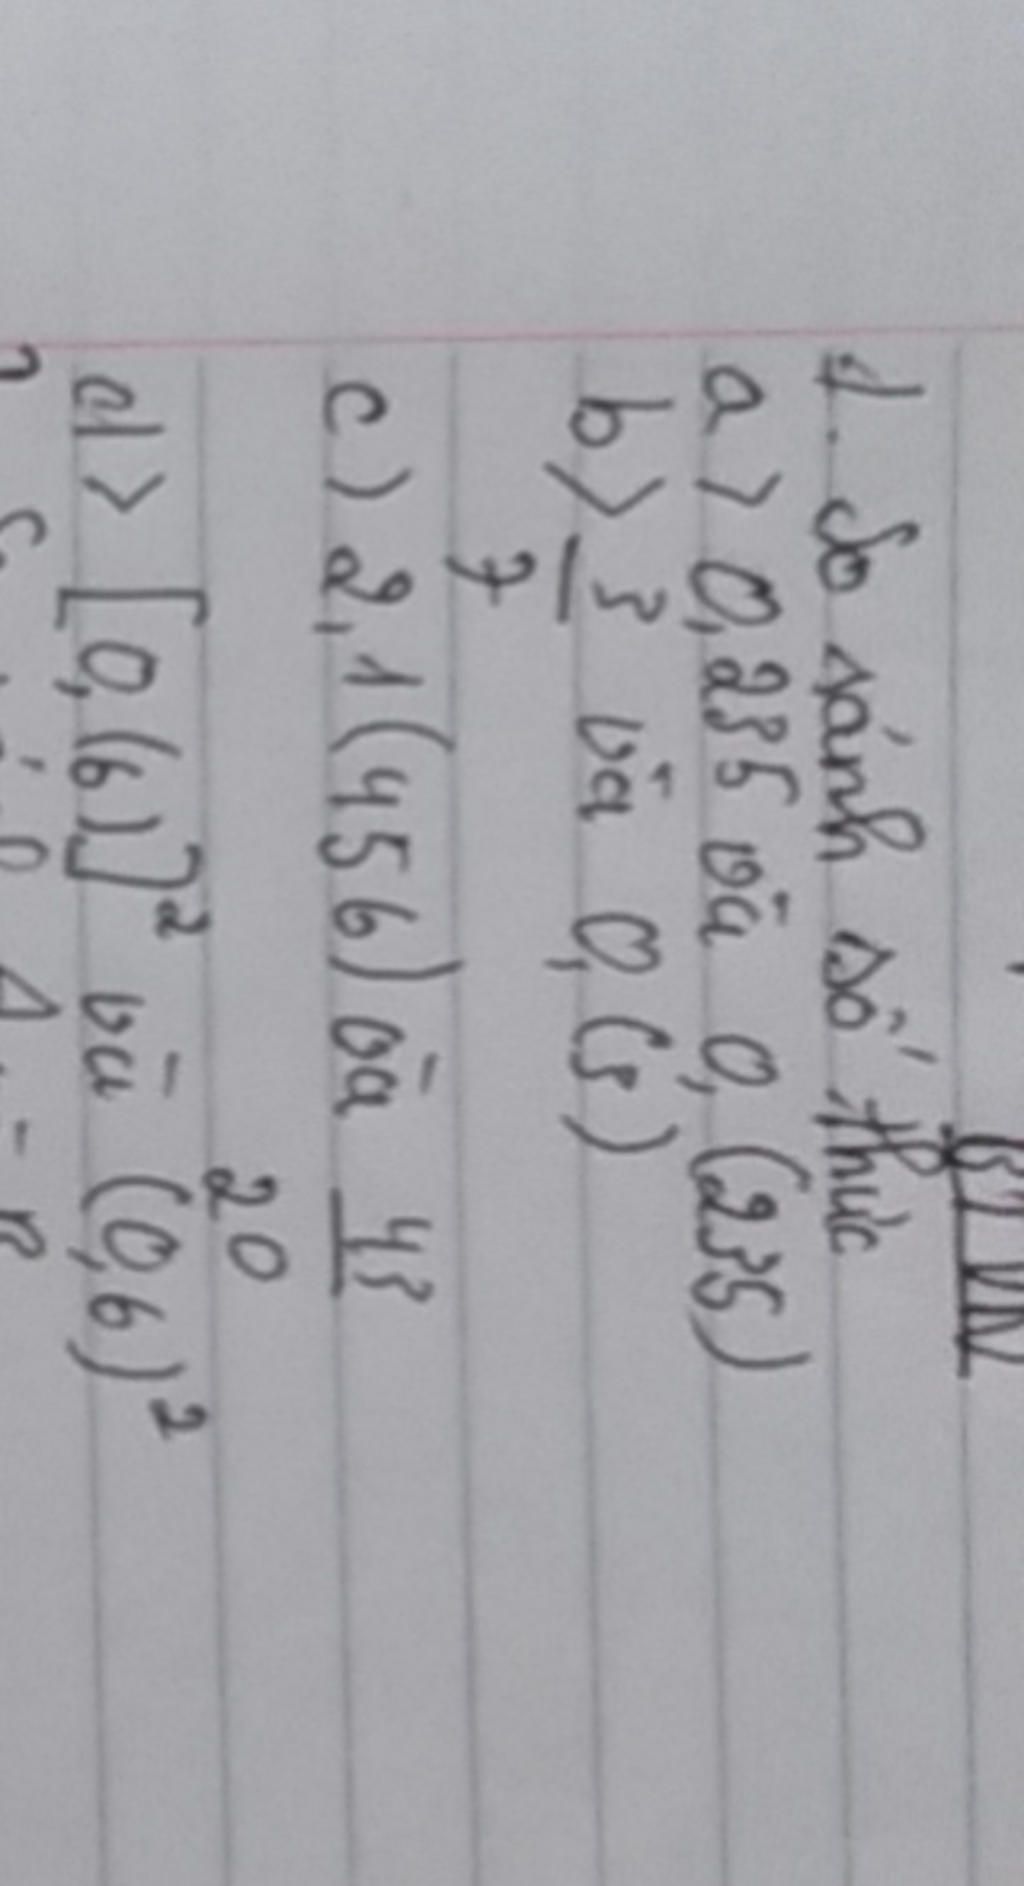 BTVN
1. So sánh số thực
a> 0,235 và 0,(235)
b> 3/7 và 0,(3)
c) 2,1(456) và 43/20
d> [0,(6)]² và (0,6)²